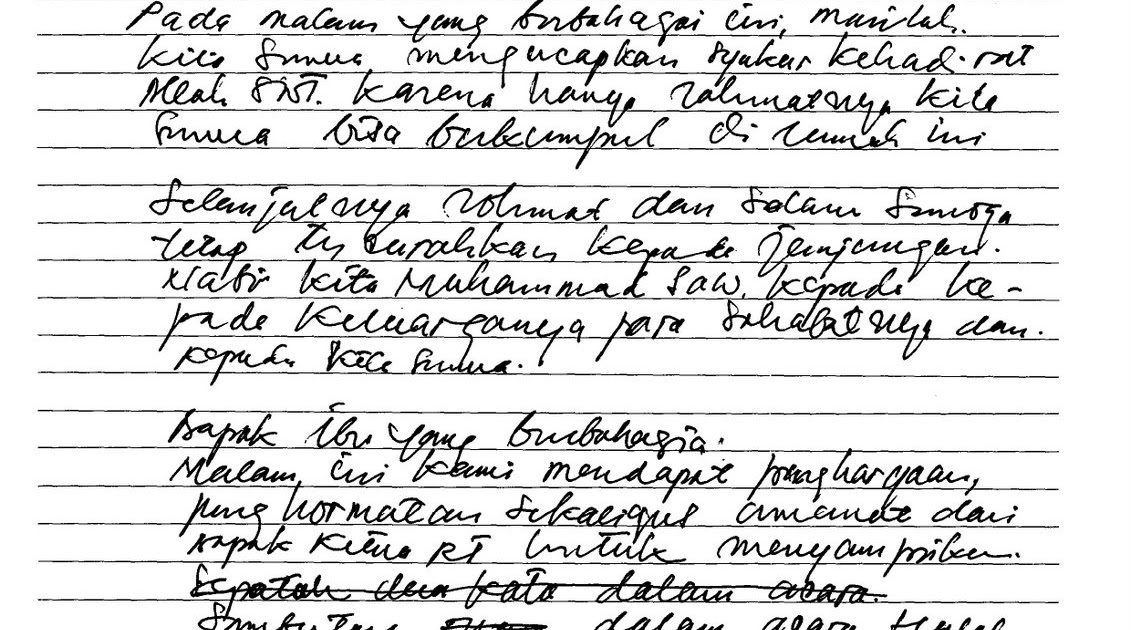 Pada malam yang berbahagia ini, marilah.
kita semua mengucapkan syukur kehadirat
Allah SWT. karena hanya rahmatnya kita
semua bisa berkumpul di rumah ini
Selanjutnya rohmat dan salam semoga
tetap tercurahkan kepada junjungan.
Nabi kita Muhammad Saw. kepada ke-
pada keluarganya para sahabatnya dan.
kepada kita semua.
Bapak Ibu yang berbahagia.
Malam ini kami mendapat penghargaan,
penghormatan sekaligus amanat dari
Bapak Ketua RT untuk menyampaikan.
Sepatah dua kata dalam acara.
Sambutan dalam acara